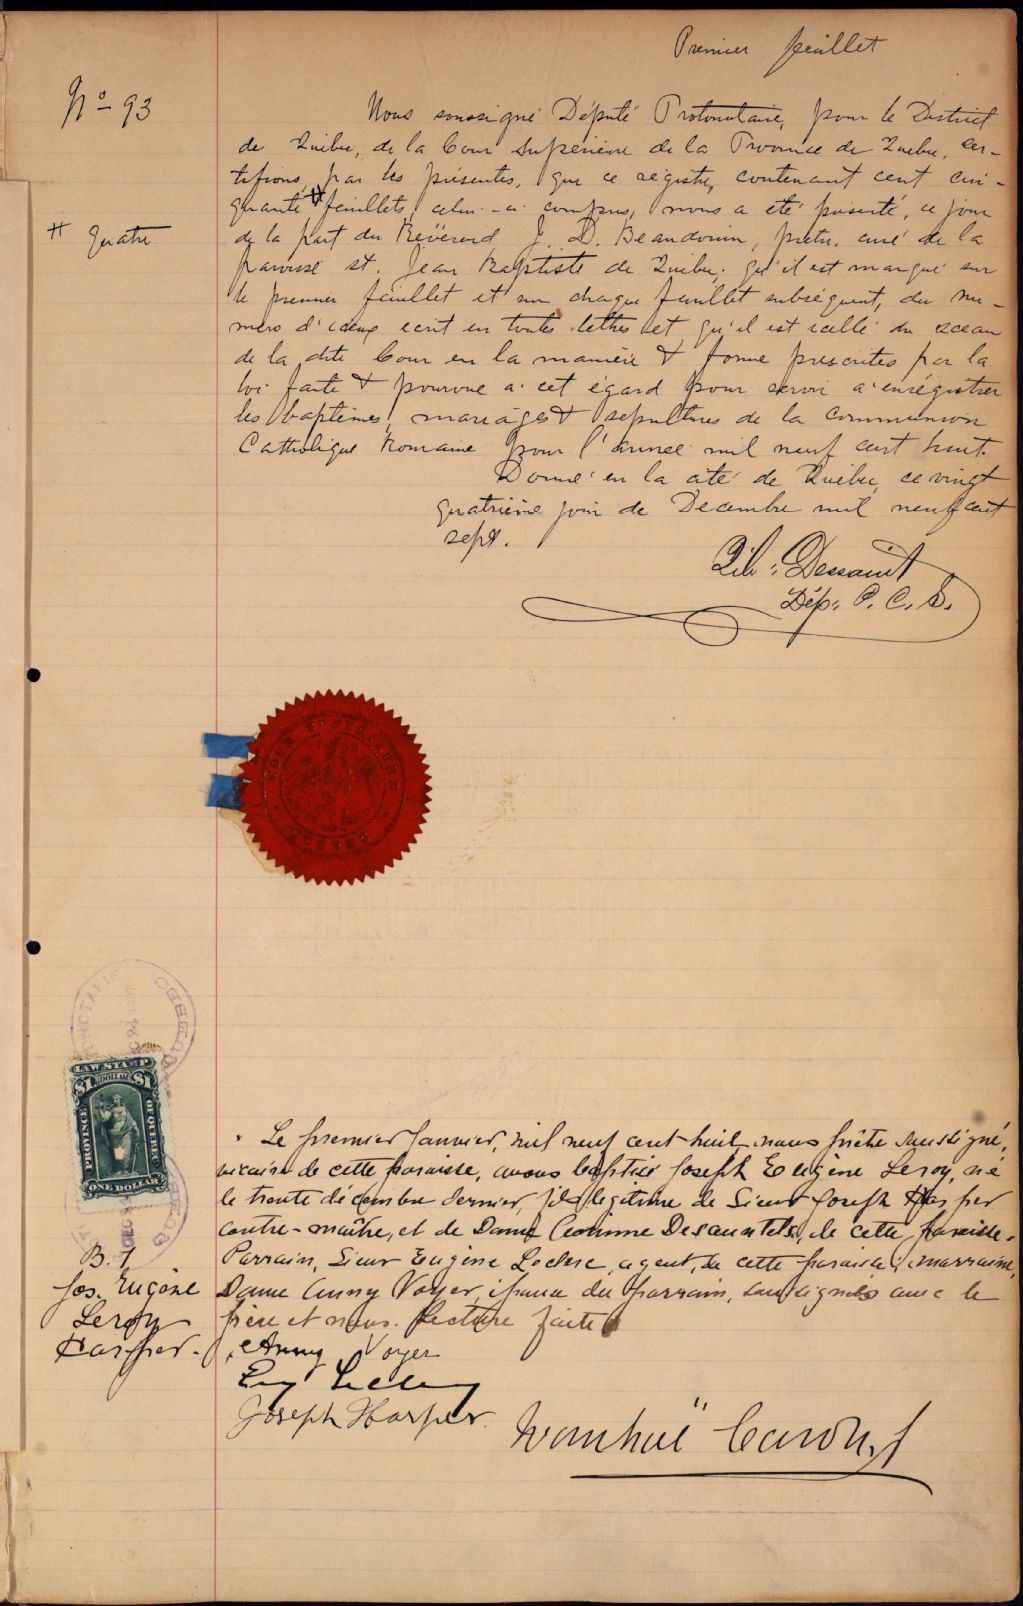 Premier feuillet
No 93
Nous soussigné Député Protonotaire, pour le District
de Québec, de la Cour Supérieure de la Province de Québec, cer-
tifions par les présentes, que ce registre, contenant cent cin-
quante # feuillets, celui-ci compris, nous a été présenté, ce jour
# quatre
de la part du Révérend J. D. Beaudouin, prêtre, curé de la
paroisse St. Jean Baptiste de Québec; qu'il est marqué sur
le premier feuillet et sur chaque feuillet subséquent, du nu-
méro d'iceux écrit en toutes lettres et qu'il est scellé du sceau
de la dite Cour en la manière & forme prescrites par la
loi faite & pourvue à cet égard pour servir à enrégistrer
les baptêmes, mariages & sépultures de la Communion
Catholique Romaine pour l'année mil neuf cent huit.
Donné en la cité de Québec, ce vingt
quatrième jour de Decembre mil neuf cent
sept.
Dessaint
Dép. P. C. S.
COUR SUPERIEURE
QUEBEC
QUEBEC
LAW STAMP
$1 DOLLAR $1
PROVINCE
OF QUEBEC
ONE DOLLAR
B. 1
Jos. Eugène
Leroy
Harper.
Le premier Janvier, mil neuf cent huit, nous prêtre soussigné,
vicaire de cette paroisse, avons baptisé Joseph Eugène Leroy, né
le trente décembre dernier, fils légitime de Sieur Joseph Harper
contre-maître, et de Dame Desautels, de cette paroisse.
Parrain, Sieur Eugène Leclerc, agent, de cette paroisse; marraine,
Dame Anny Voyer, épouse du parrain, soussignés avec le
père et nous. Lecture faite
Anny Voyer
Eug Leclerc
Joseph Harper
Ivanhoë Caron, ptre